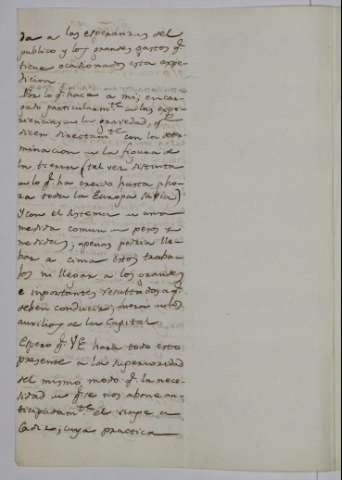 da a las esperanzas del
publico y los grandes gastos q.
tiene ocasionados esta expe-
dicion.
Por lo q. haca a mi, encar-
gado particularm.te de las expe-
riencias de la gravedad, q.e
dicen directam.te con la deter-
minacion de la figura de
la tierra (tal vez distinta
de lo q. ha creido hasta aho-
ra toda la Europa sabia)
y con el sistema de una
medida comun de pesos y
medidas, apenas podria lle-
bar a cima estos traba-
jos ni llegar a los grandes
e importantes resultados a q.
deben conducir, fuera de los
auxilios de la Capital.
Espero q. VE hará todo esto
presente a la superioridad
del mismo modo q. la nece-
sidad de q. se nos abone an-
ticipadam.te el viage de
Cadiz, cuya practica